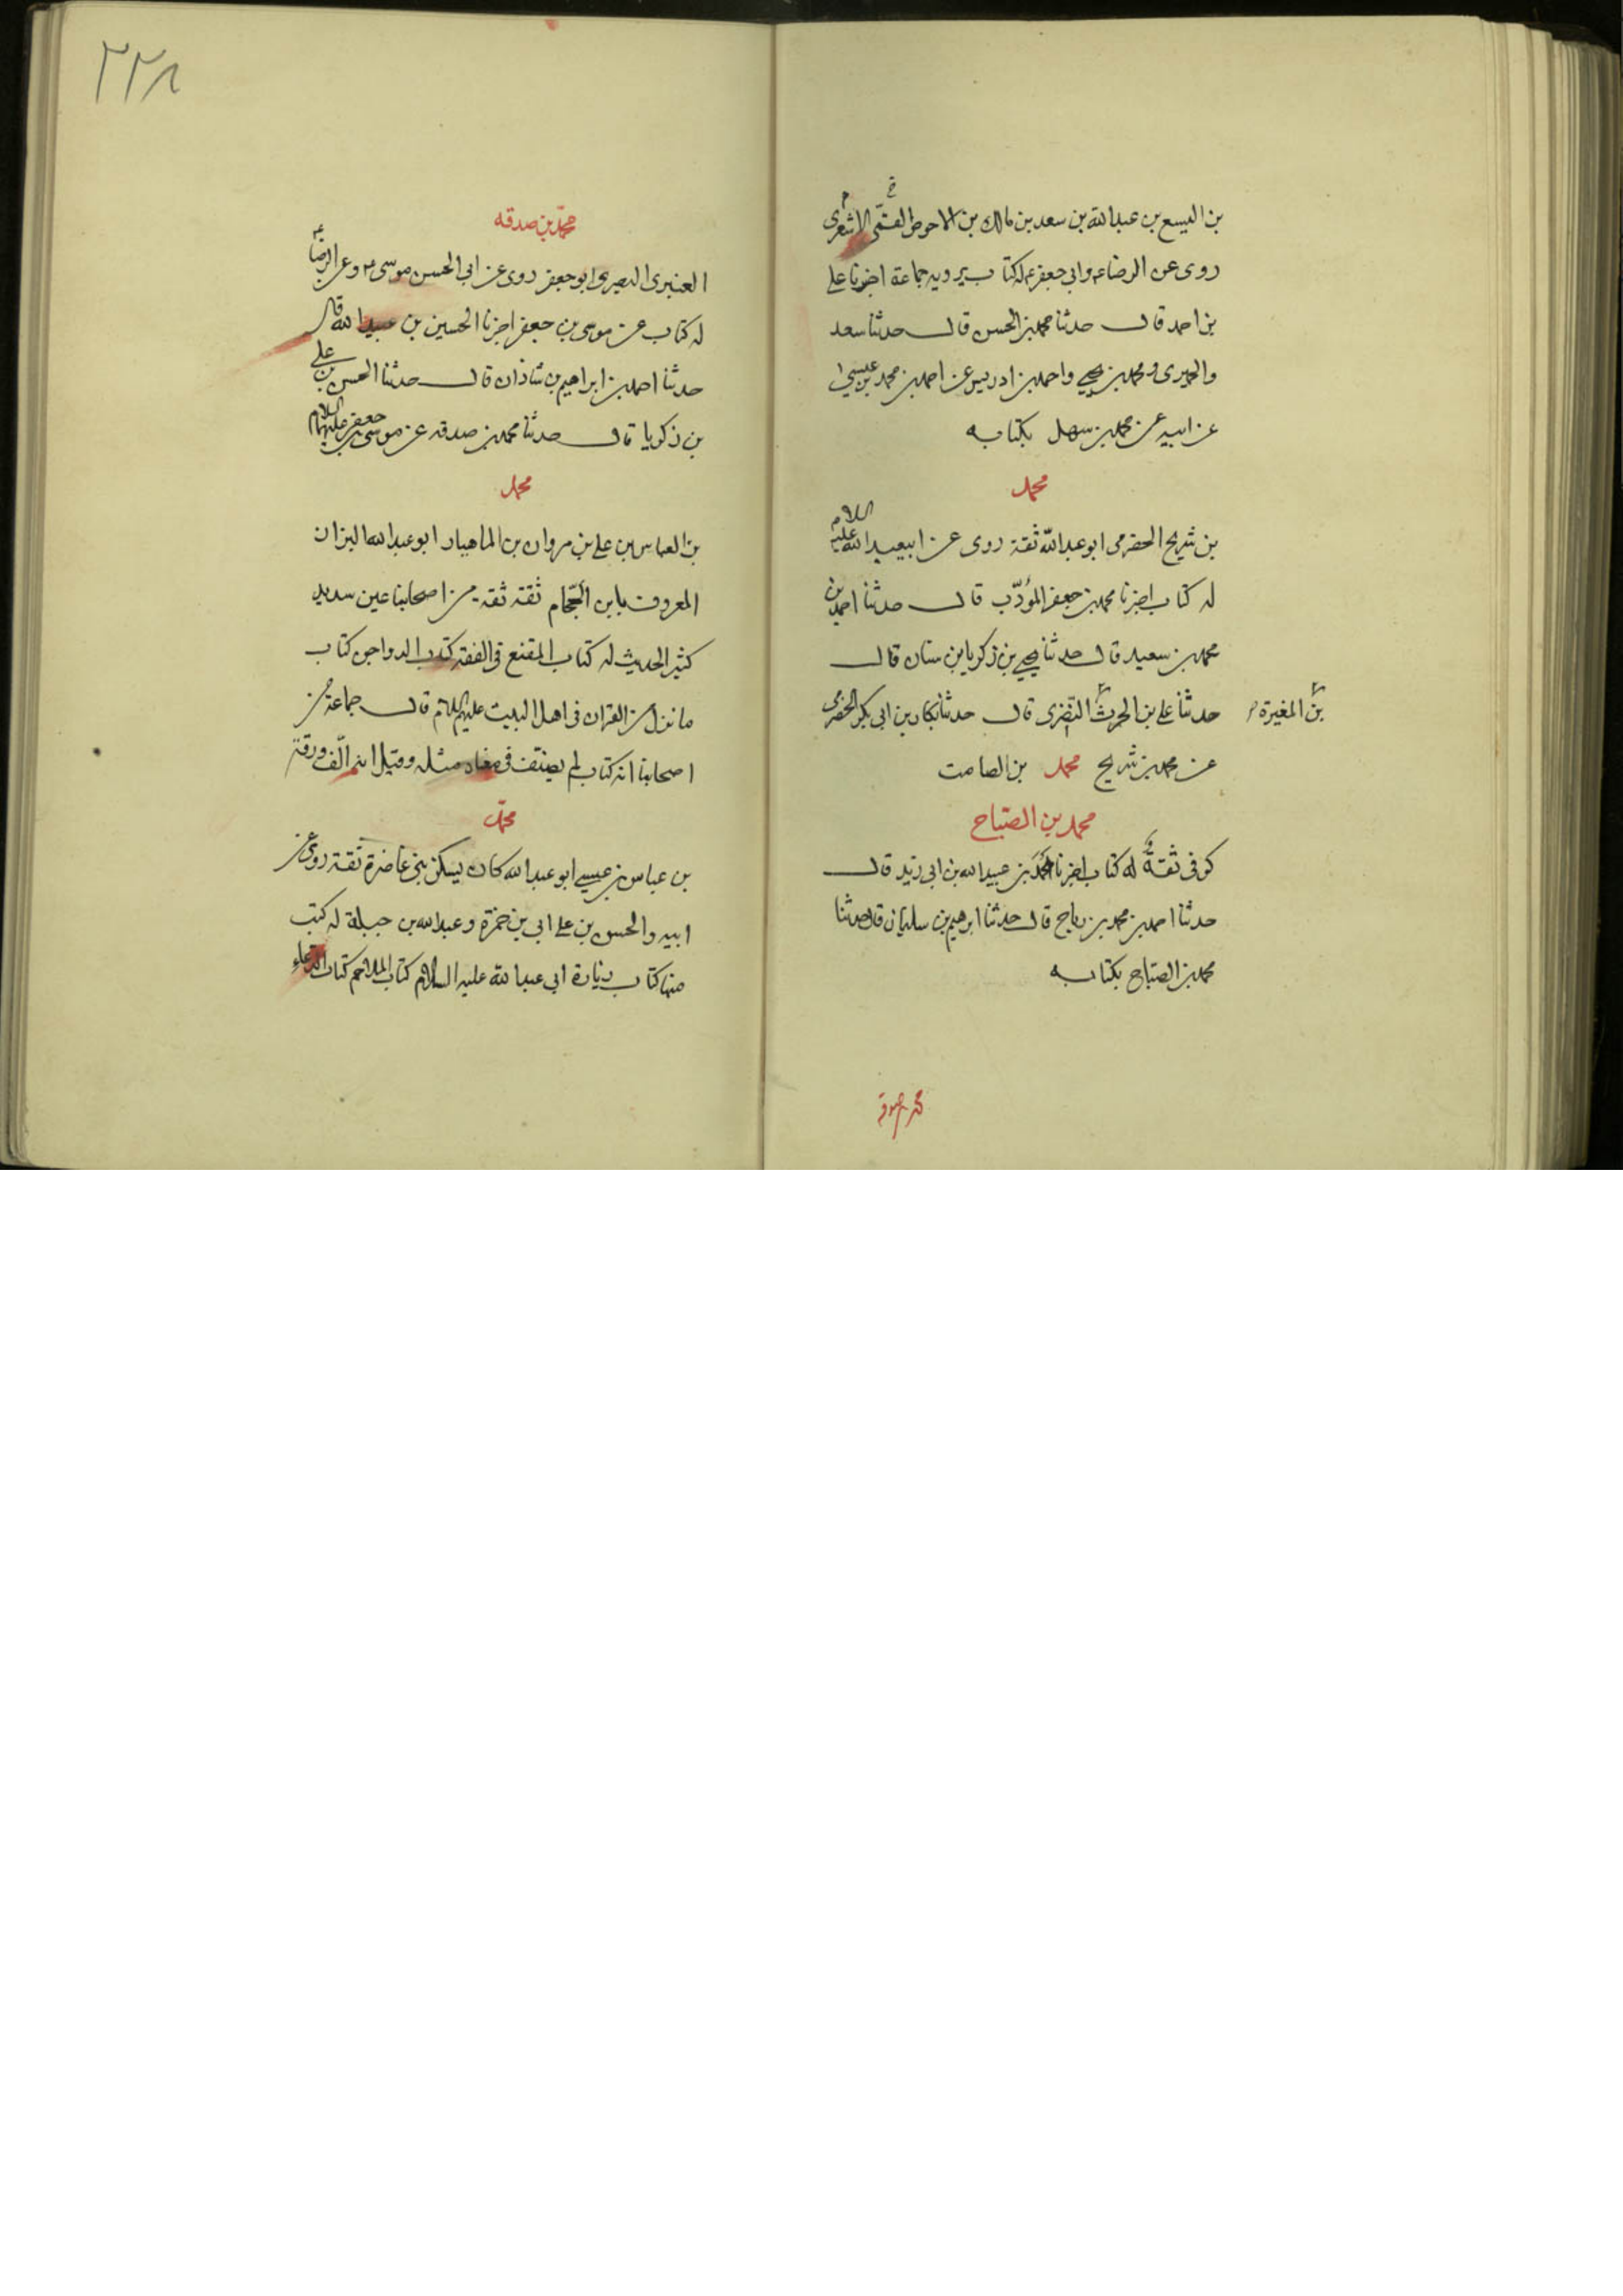 بن اليسع بن عبدالله بن سعد بن مالك بن الاحوص القمّى الاشعرى
روى عن الرضاء وابى جعفرء له كتاب يرويه جماعة اخبرنا على
بن احمد قال حدثنا محمد بن الحسن قال حدثنا سعد
والحميرى ومحمد بن يحيى واحمد بن ادريس عن احمد بن محمد بن عيسى
عن ابيه عن محمد بن سهل بكتابه
محمد
بن شريح الحضرمى ابو عبدالله ثقة روى عن ابيعبدالله عليه السلام
له كتاب اخبرنا محمد بن جعفر المؤدّب قال حدثنا احمد بن
محمد بن سعيد قال حدثنا يحيى بن زكريا بن قال
حدثنا على بن الحرث النضرى قال حدثنا بكار بن ابى بكر الحضرمى
بن المغيرة
عن محمد بن شريح محمد بن الصامت
محمد بن الصباح
كوفى ثقة له كتاب اخبرنا بن عبيدالله بن ابى زيد قال
حدثنا احمد بن محمد بن رباح قال حدثنا ابرهيم بن سليمان قال حدثنا
محمد بن الصباح بكتابه
محمد بن صدقة
٢٢٨
محمد بن صدقه
العنبرى البصرى ابو جعفر روى عن ابى الحسن موسى وعن الرضاء
له كتاب عن موسى بن جعفر اخبرنا الحسين بن عبيدالله قال
حدثنا احمد بن ابراهيم بن شاذان قال حدثنا الحسن بن على
بن زكريا قال حدثنا محمد بن صدقه عن موسى بن جعفر عليهما السلام
محمد
بن العباس بن على بن مروان بن الماهيار ابو عبدالله البزاز
المعروف بابن الجحام ثقة ثقة من اصحابنا عين سديد
كثير الحديث له كتاب المقنع فى الفقه كتاب الدواجن كتاب
ما نزل من القران فى اهل البيت عليهم السلام قال جماعة من
اصحابنا انه كتاب لم يصنف فى معناه مثله وقيل انه الف ورقة
محمد
بن عباس بن عيسى ابو عبدالله كان يسكن بنى غاضرة ثقة روى عن
ابيه والحسن بن على ابى بن حمزة وعبدالله بن جبلة له كتب
منها كتاب زيارة ابى عبدالله عليه السلام كتاب الملاحم كتاب الدعاء